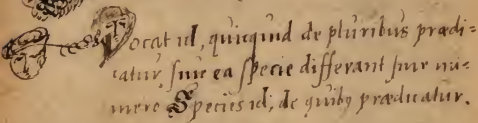 Vocat id, quicquid de pluribus prædi=
catur, siue ea specie differant siue nu=
mero Species id, de quibꝫ prædicatur.